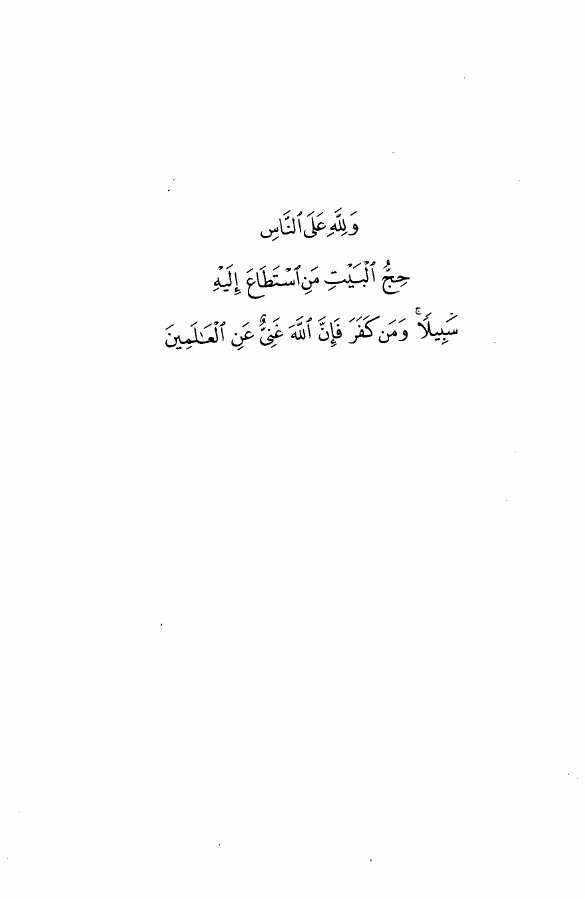 وَلِلَّهِ عَلَى ٱلنَّاسِ
حِجُّ ٱلْبَيْتِ مَنِ ٱسْتَطَاعَ إِلَيْهِ
سَبِيلًا ۚ وَمَن كَفَرَ فَإِنَّ ٱللَّهَ غَنِىٌّ عَنِ ٱلْعَـٰلَمِينَ